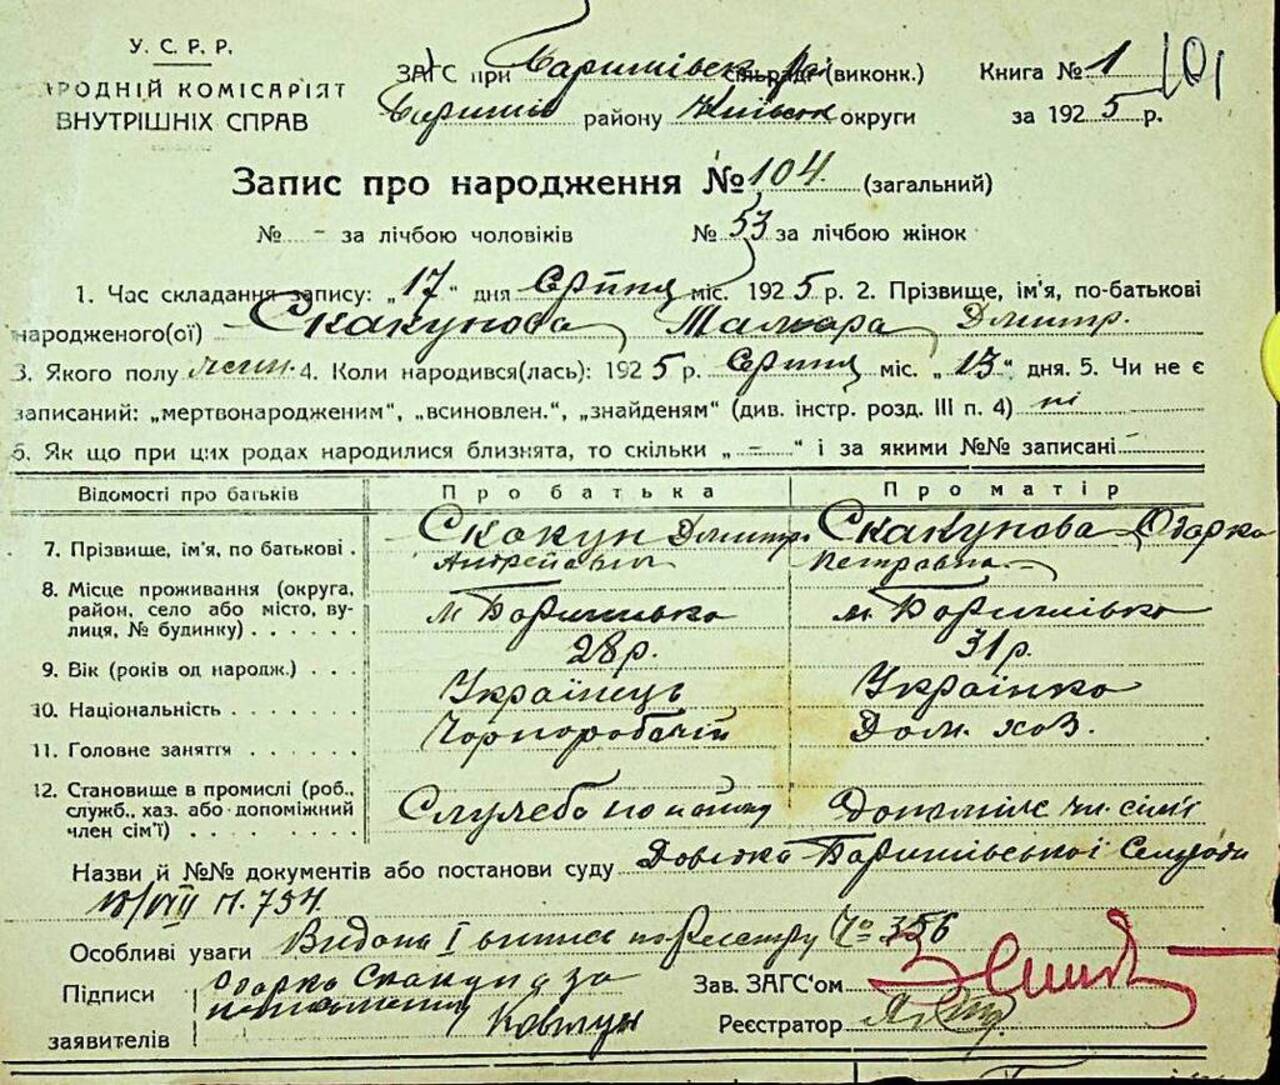 У. С. Р. Р.
АРОДНІЙ КОМІСАРІЯТ
ВНУТРІШНІХ СПРАВ
ЗАГС при Баришівськ. рай (виконк.) Книга № 1 101
Баришів району Київськ округи за 1925 р.
Запис про народження № 104. (загальний)
№ - за лічбою чоловіків № 53 за лічбою жінок
1. Час складання запису: „17“ дня Серпня міс. 1925 р. 2. Прізвище, ім'я, по-батькові
народженого(ої) Скакунова Тамара Дмитр.
3. Якого полу жін. 4. Коли народився(лась): 1925 р. Серпня міс. „13“ дня. 5. Чи не є
записаний: „мертвонародженим“, „всиновлен.“, „знайденям“ (див. інстр. розд. III п. 4) ні
6. Як що при цих родах народилися близнята, то скільки „-“ і за якими №№ записані -
Відомості про батьків Про батька Про матір
7. Прізвище, ім'я, по батькові . Скакун Дмитр. Андрейович Скакунова Одарка Петравна
8. Місце проживання (округа, район, село або місто, вулиця, № будинку) . . . . . . м Баришівка м. Баришівка
9. Вік (років од народж.) . . . 28 р. 31 р.
10. Національність . . . . . . . Українець Українка
11. Головне заняття . . . . . . Чорноробочій Дом. хоз.
12. Становище в промислі (роб., служб., хаз. або допоміжний член сім'ї) . . . . . . . . Служба по найму Допоміж чл. сім'ї
Назви й №№ документів або постанови суду Довідка Баришівської Сельради
/VIII н. 734.
Особливі уваги Видана I випис по Реєстру № 356
Підписи заявителів Одарка Скакун а за
неписьменну Ковтун
Зав. ЗАГС'ом
Реєстратор